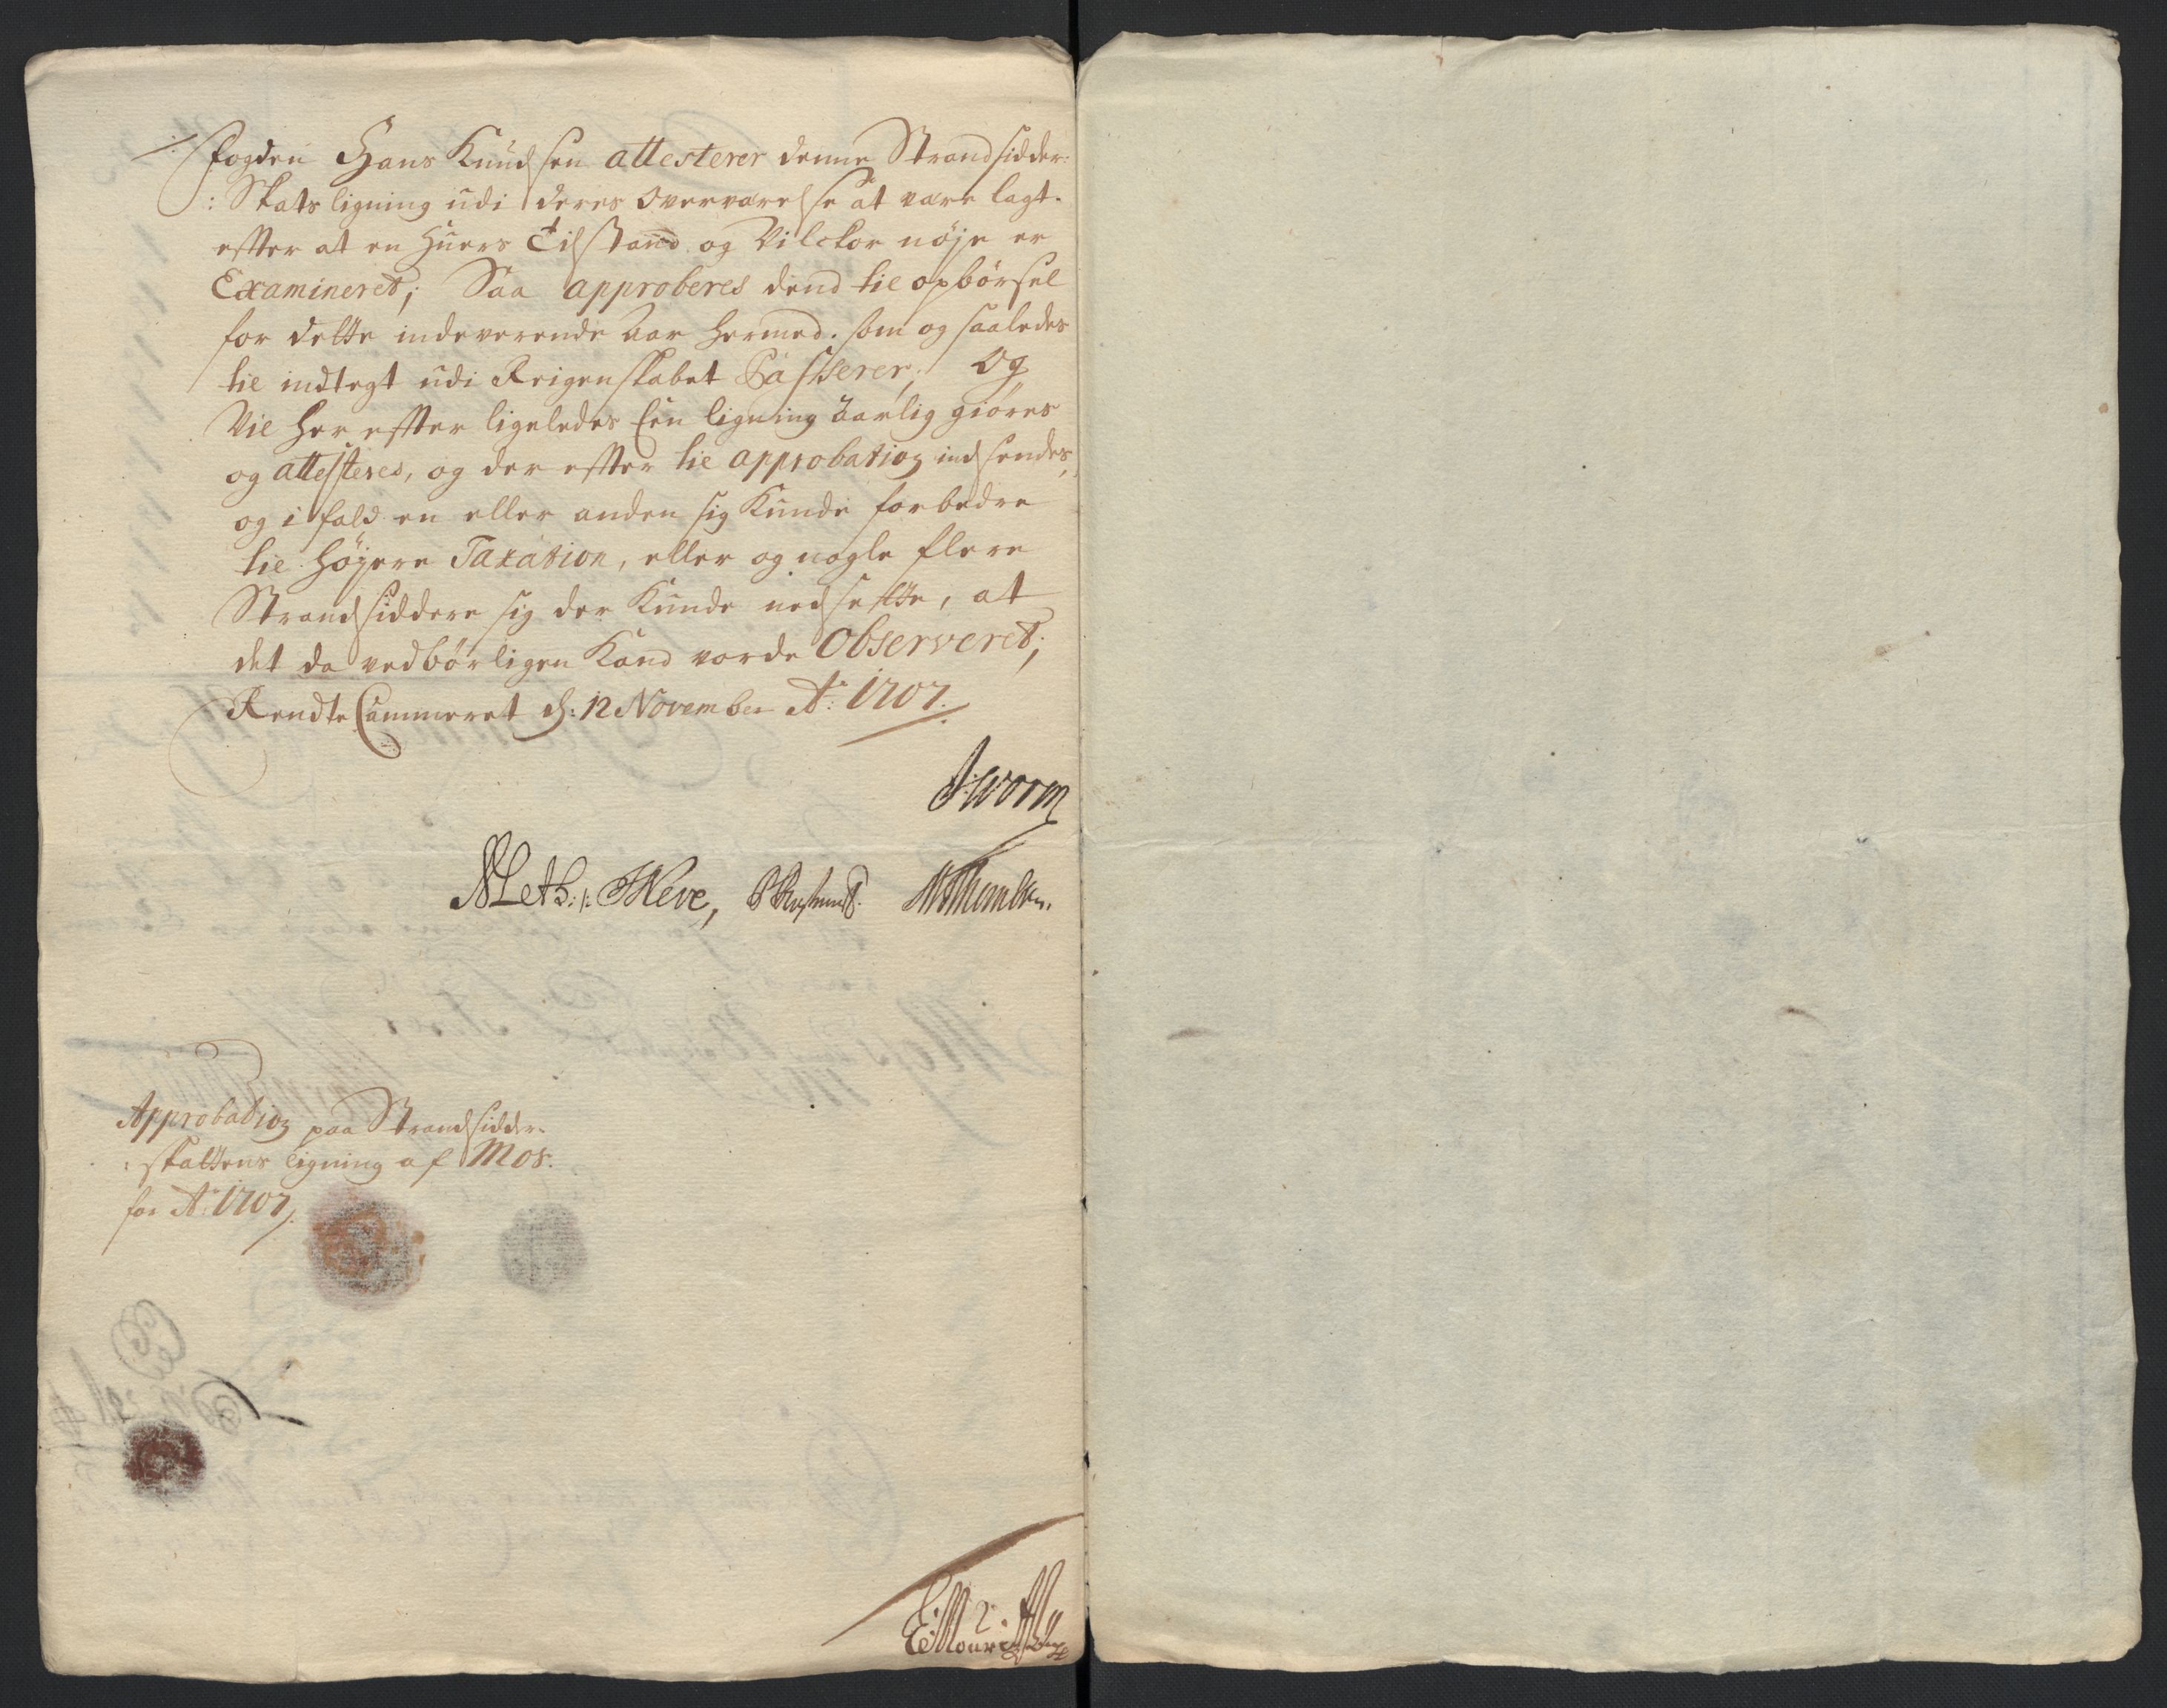 Fogden Hans Knudsen attesterer denne Strandsidder:
: Skats ligning udi deres Overværelse at være lagt.
effter at en huers Tilstand og Vilckor nøje er
Examineret; Saa approberes dend til opbörsel
for dette indeværende Aar hermed. som og saaledes
til indtegt udi Reigenskabet Passerer; Og
Vil her effter ligeledes Een ligning aarlig giøres
og attesteres, og der effter til approbation indsendes,
og i fald en eller anden sig Kunde forbedre
til høyere Taxation, eller og nogle flere
Strandsiddere sig der Kunde nedsette, at
det da vedbörligen Kand vorde Observeret;
Rendte Cammeret d: 12 November Ao: 1707.
J: Worm
Meve,
Approbation paa Strandsidder-
: skattens ligning af Mos.
for Ao: 1707.